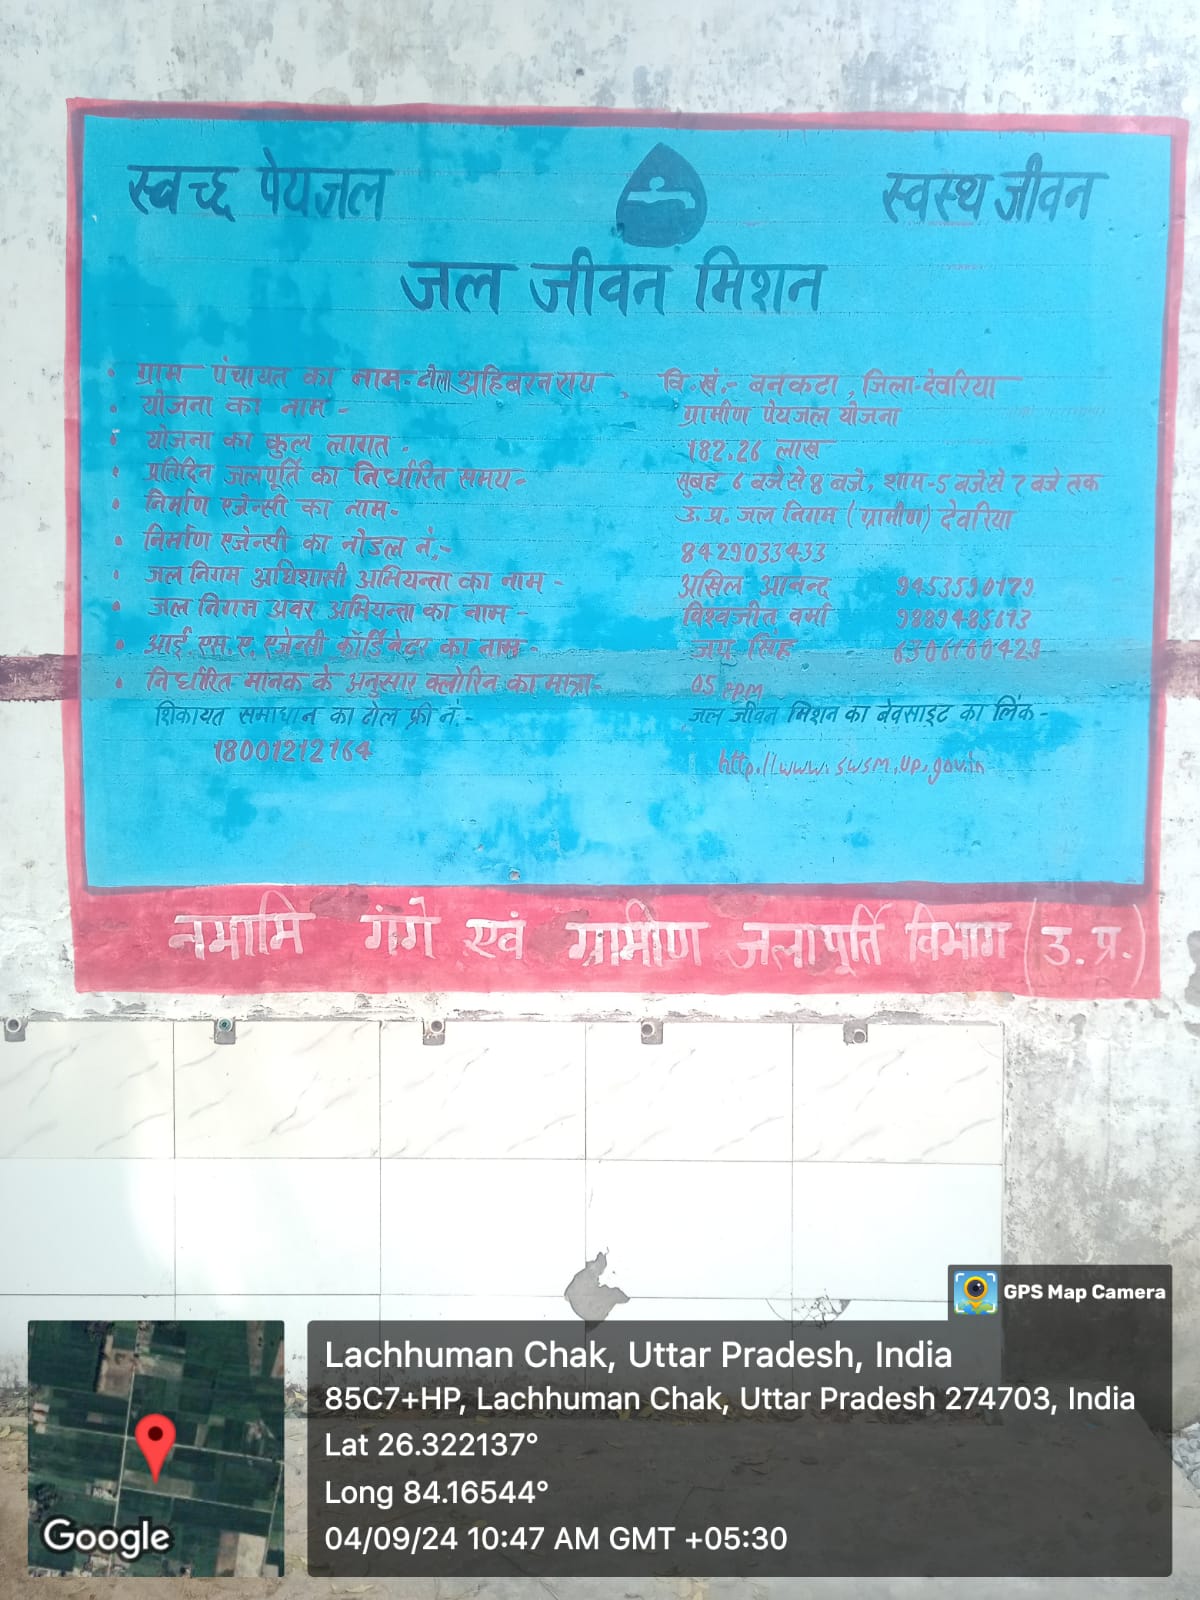 स्वच्छ पेयजल स्वस्थ जीवन
जल जीवन मिशन
• ग्राम पंचायत का नाम- टोला अहिबरनराय, वि.खं.- बनकटा, जिला-देवरिया
• योजना का नाम - ग्रामीण पेयजल योजना
• योजना का कुल लागत - 182.26 लाख
• प्रतिदिन जलपूर्ति का निर्धारित समय- सुबह 6 बजे से 8 बजे, शाम-5 बजे से 7 बजे तक
• निर्माण एजेन्सी का नाम- उ.प्र. जल निगम (ग्रामीण) देवरिया
• निर्माण एजेन्सी का नोडल नं.- 8429033433
• जल निगम अधिशासी अभियन्ता का नाम - असिल आनन्द
• जल निगम अवर अभियन्ता का नाम - विश्वजीत वर्मा
• आई.एस.ए. एजेन्सी कॉर्डिनेटर का नाम- जय सिंह
• निर्धारित मानक के अनुसार क्लोरिन का मात्रा- 05 PPM
शिकायत समाधान का टोल फ्री नं.- जल जीवन मिशन का बेवसाइट का लिंक-
18001212164 http://www.swsm.up.gov.in
नमामि गंगे एवं ग्रामीण जलापूर्ति विभाग (उ.प्र.)
GPS Map Camera
Lachhuman Chak, Uttar Pradesh, India
85C7+HP, Lachhuman Chak, Uttar Pradesh 274703, India
Lat 26.322137°
Long 84.16544°
04/09/24 10:47 AM GMT +05:30
Google